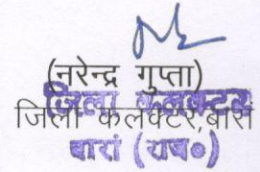 (नरेन्द्र गुप्ता)
जिला कलक्टर, बारां
जिला कलक्टर
बारां (राज०)